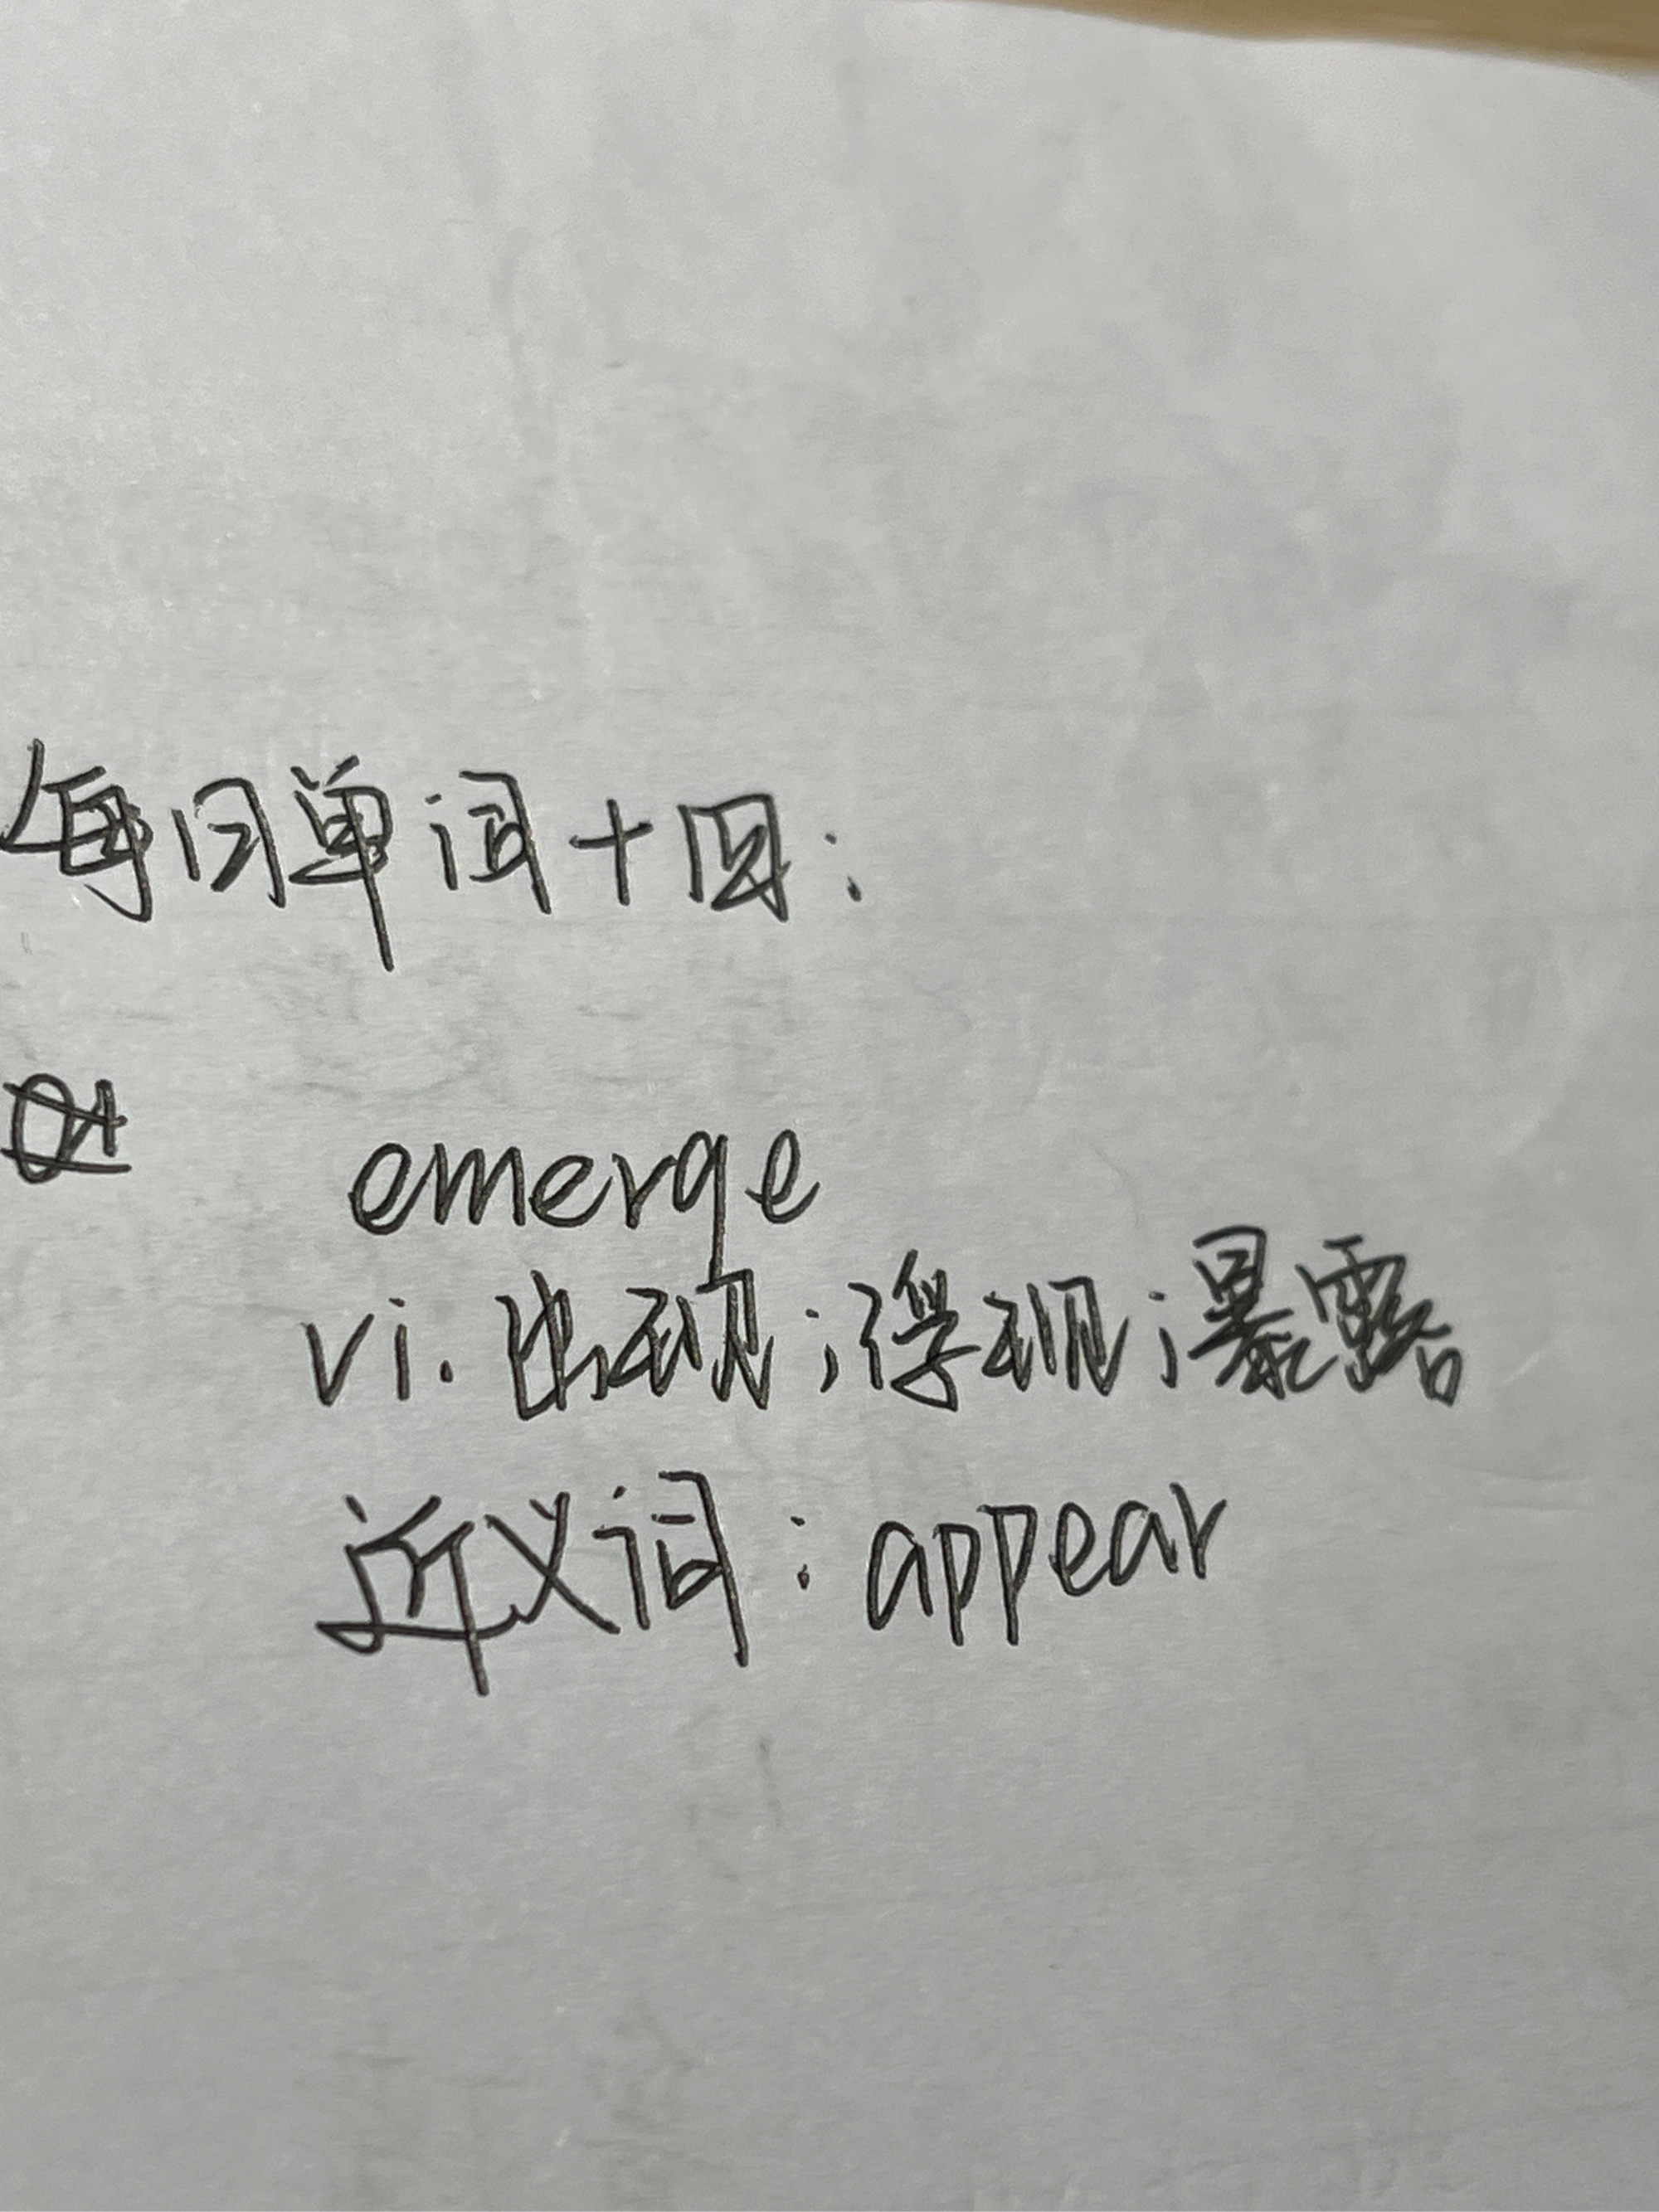 每日单词十回：
emerge
vi. 出现；浮现；暴露
近义词：appear